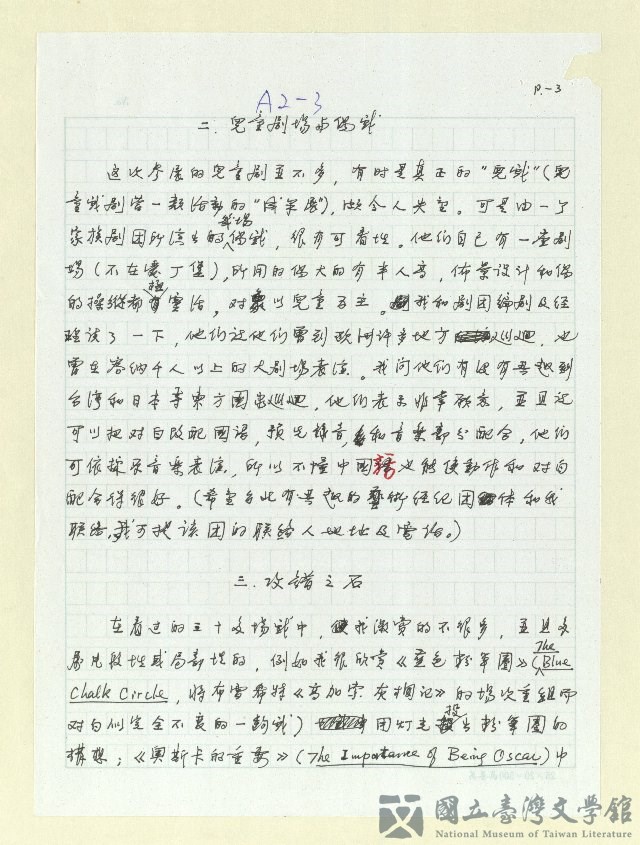 P.-3
A2-3
二.兒童劇場与偶戲
这次參展的兒童劇並不多,有时是真正的“兒戲”(兒
童戲劇營一類活動的“成果展”),
令人失望。可是由一个
家族剧团所演出的英場偶戲,很有可看性。他们自己有一座剧
場(不在愛丁堡),所用的偶大的有半人高,佈景設计和偶
的操縱都極靈活,对象以兒童为主。我和剧团編剧及经
理談了一下,他们说他们曾到欧洲许多地方巡迴,也
曾在容納千人以上的大剧場表演。我问他们有没有興趣到
台灣和日本等東方國家巡迴,他们表示非常願意,並且说
可以把对白改配國语,預先錄音,和音樂部分配合,他们
可依採录音樂表演,所以不懂中國話也能使動作和对白
配合得很好。(希望对此有興趣的藝術经纪团体和我
联络,我可把该团的联络人地址及電话。)
三.攻錯之石
在看过的三十多場戲中,我激賞的不很多,並且多
屬片段性或局部性的,例如我很欣赏《藍色粉筆圈》(The Blue
Chalk Circle,將布雷希特《高加索灰欄记》的場次重組而
对白似完全不衷的一齣戲)用灯光投出粉筆圈的
構想;《奧斯卡的重要》(The Importance of Being Oscar)中
國立臺灣文學館
National Museum of Taiwan Literature